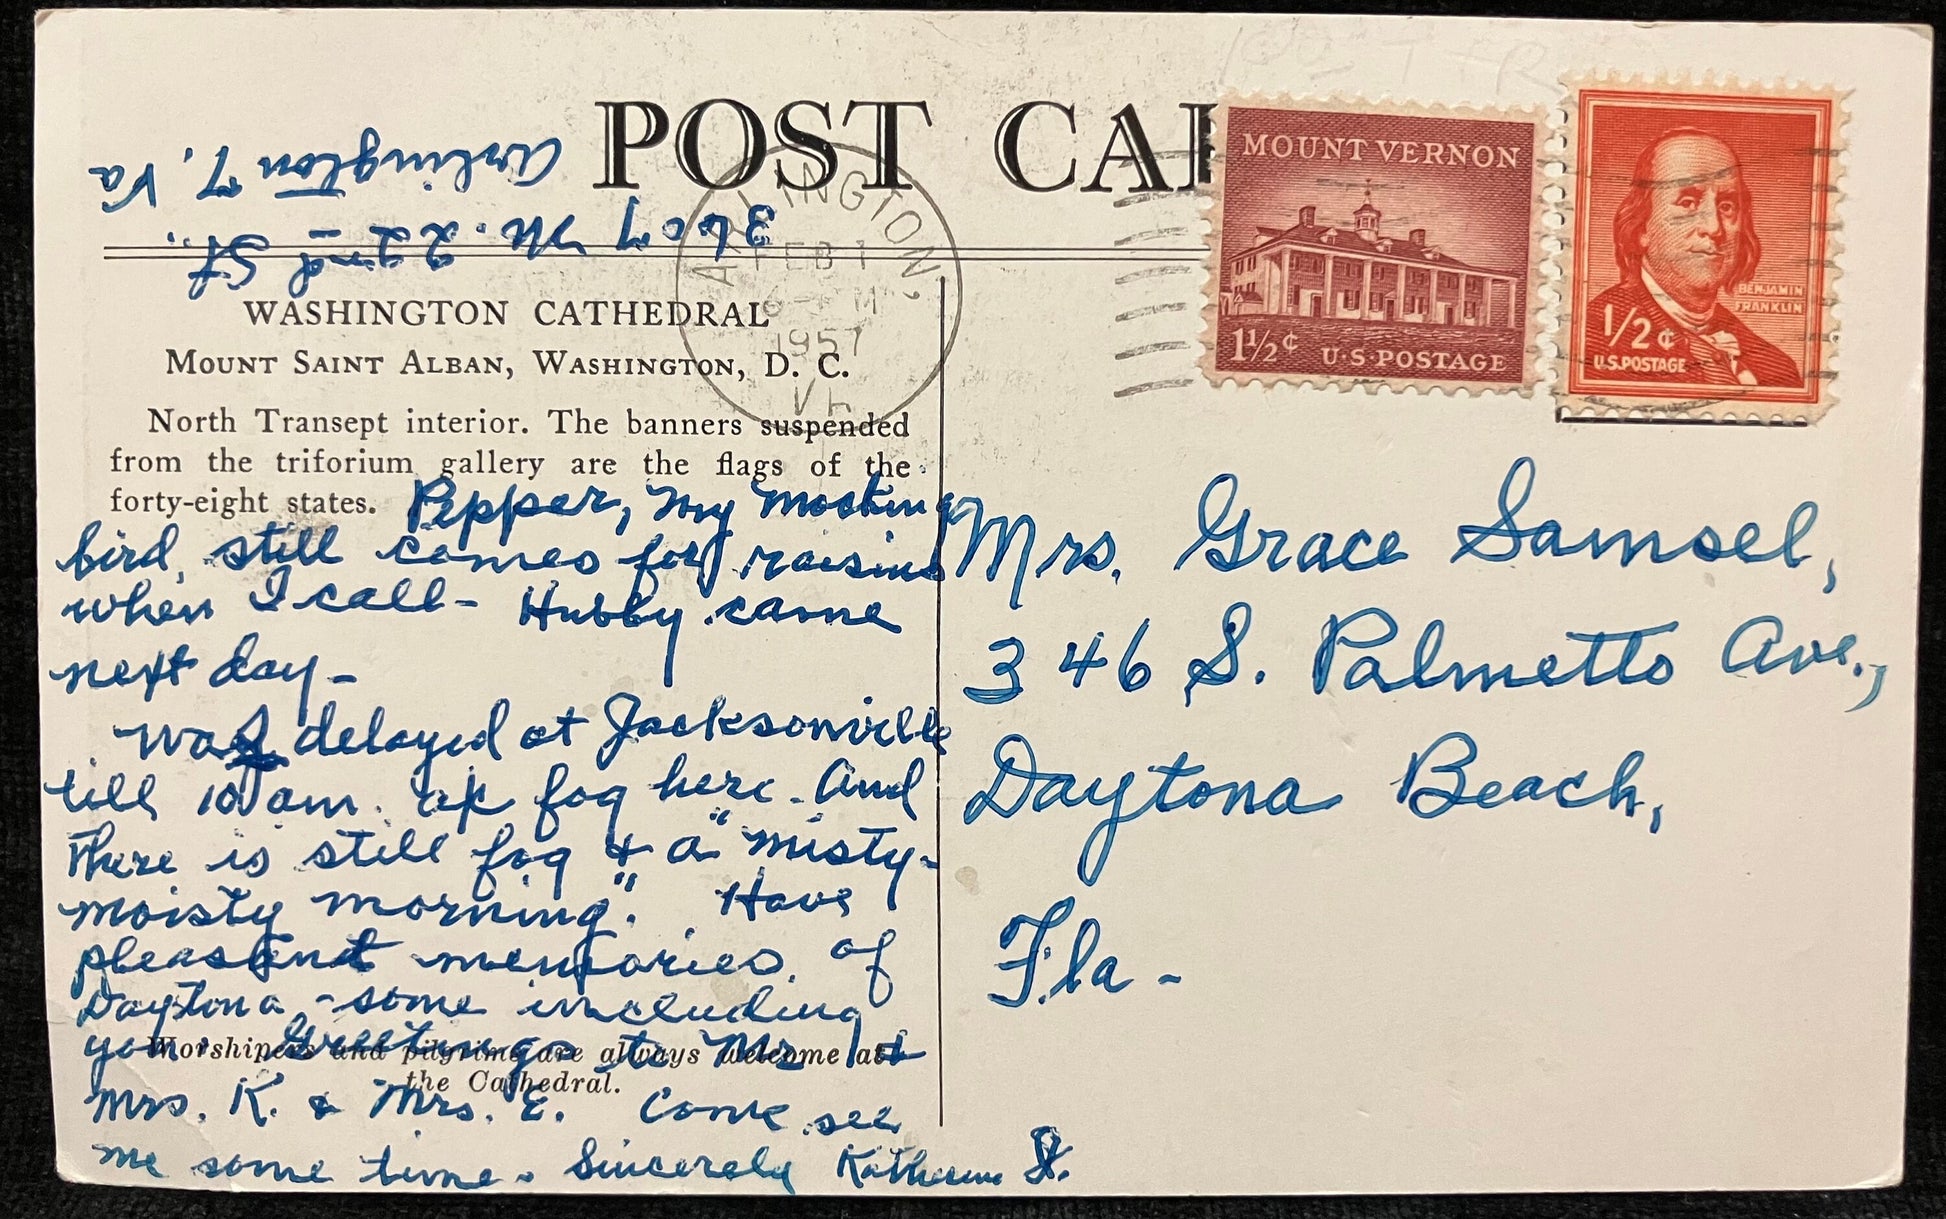 POST CAR
3607 N. 22nd St.,
Arlington 7, Va
ARLINGTON,
FEB 1
1957
VA
MOUNT VERNON
1½¢ U·S POSTAGE
BENJAMIN
FRANKLIN
1/2¢
U.S. POSTAGE
WASHINGTON CATHEDRAL
MOUNT SAINT ALBAN, WASHINGTON, D. C.
North Transept interior. The banners suspended
from the triforium gallery are the flags of the
forty-eight states.
Pepper, my mocking
bird, still comes for raisins
when I call - Hubby came
next day -
Was delayed at Jacksonville
till 10 am. fog here. And
there is still fog & a "misty-
moisty morning." Have
pleasant memories of
Daytona - some including
you. Greetings to Mr &
Mrs. K. & Mrs. E. Come see
me some time. Sincerely Katherine
Worshipers and pilgrims are always welcome at
the Cathedral.
Mrs. Grace Samsel,
346 S. Palmetto Ave.,
Daytona Beach,
Fla -